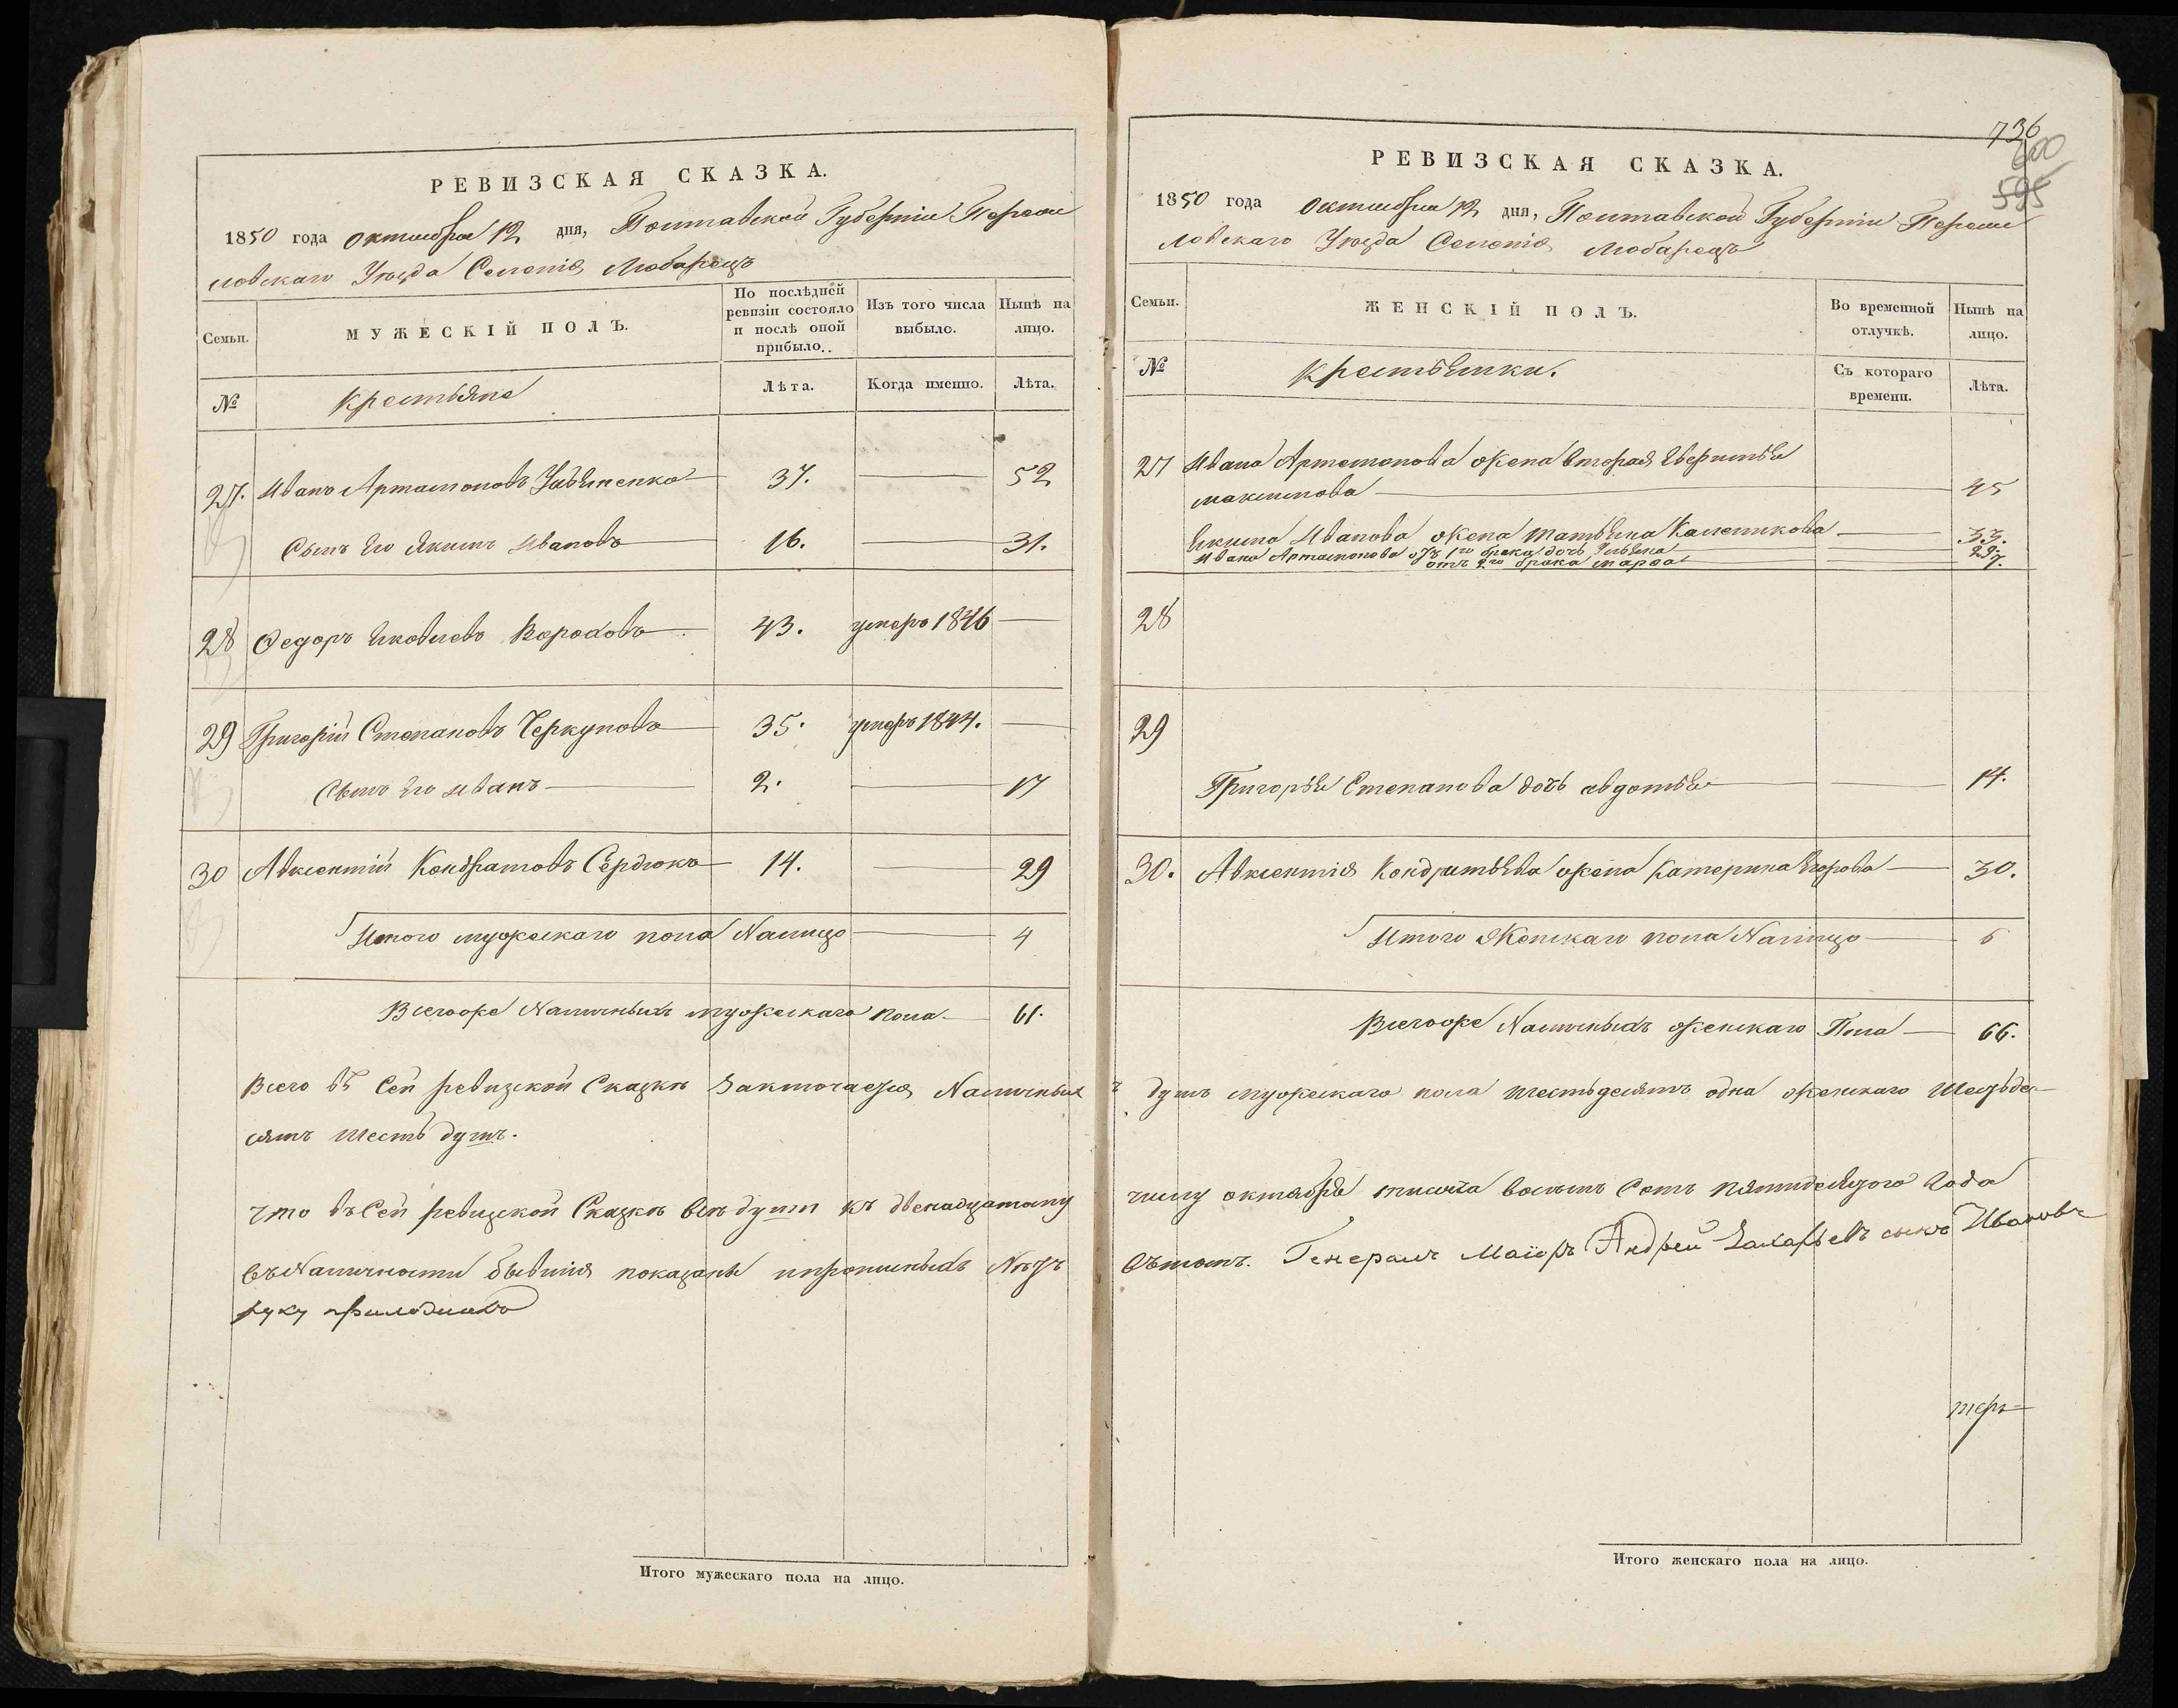 РЕВИЗСКАЯ СКАЗКА.
1850 года Октября 12 дня, Полтавской Губерніи Переяс
ловскаго Уезда Селенія Любарецъ
Семьи.
МУЖЕСКІЙ ПОЛЪ.
По послѣдней ревизіи состояло и послѣ оной прибыло..
Изъ того числа выбыло.
Нынѣ на лицо.
№
Крестьяне
Лѣта.
Когда именно.
Лѣта.
27. Иванъ Артамоновъ 37. 52
Сынъ Его Якимъ Ивановъ 16. 31.
28 Федоръ Яковлевъ 43. умеръ 1846
29 Григорій Степановъ Черкуновъ 35. умеръ 1844.
Сынъ Его Иванъ 2. 17
30 Авксентій Кондратовъ Сердюкъ 14. 29
Итого мужескаго пола Налицо 4
Всегоже Наличныхъ мужескаго пола 61.
Всего въ Сей ревизской Сказке Заключается Наличных
сятъ шесть душъ.
Что въ Сей ревизской Сказке все души къ двенадцатому
въ Наличности бывшия показаны
руку приложилъ
Итого мужескаго пола на лицо.
736
600
595
РЕВИЗСКАЯ СКАЗКА.
1850 года Октября 12 дня, Полтавской Губерніи Переяс
ловскаго Уезда Селенія Любарецъ
Семьи.
ЖЕНСКІЙ ПОЛЪ.
Во временной отлучкѣ.
Нынѣ на лицо.
№
Крестьянки.
Съ котораго времени.
Лѣта.
27 Ивана Артамонова жена вторая
Максимова 45
Якима Иванова жена Татьяна Каленикова 33.
Ивана Артамонова отъ 1го брака дочь Ульяна 29.
отъ 2го брака Марфа 7.
28
29
Григорья Степанова дочь Авдотья 14.
30. Авксентія Кондратьева жена Катерина Егорова 30.
Итого Женскаго пола Налицо 6
Всегоже Наличныхъ женскаго Пола 66.
ъ душъ мужескаго пола шестьдесятъ одна женскаго Шестьде
числу октября тысяча восемь Сотъ пятидесятого Года
Генералъ Маіоръ Андрей Захарьевъ сынъ Ивановъ
Итого женскаго пола на лицо.